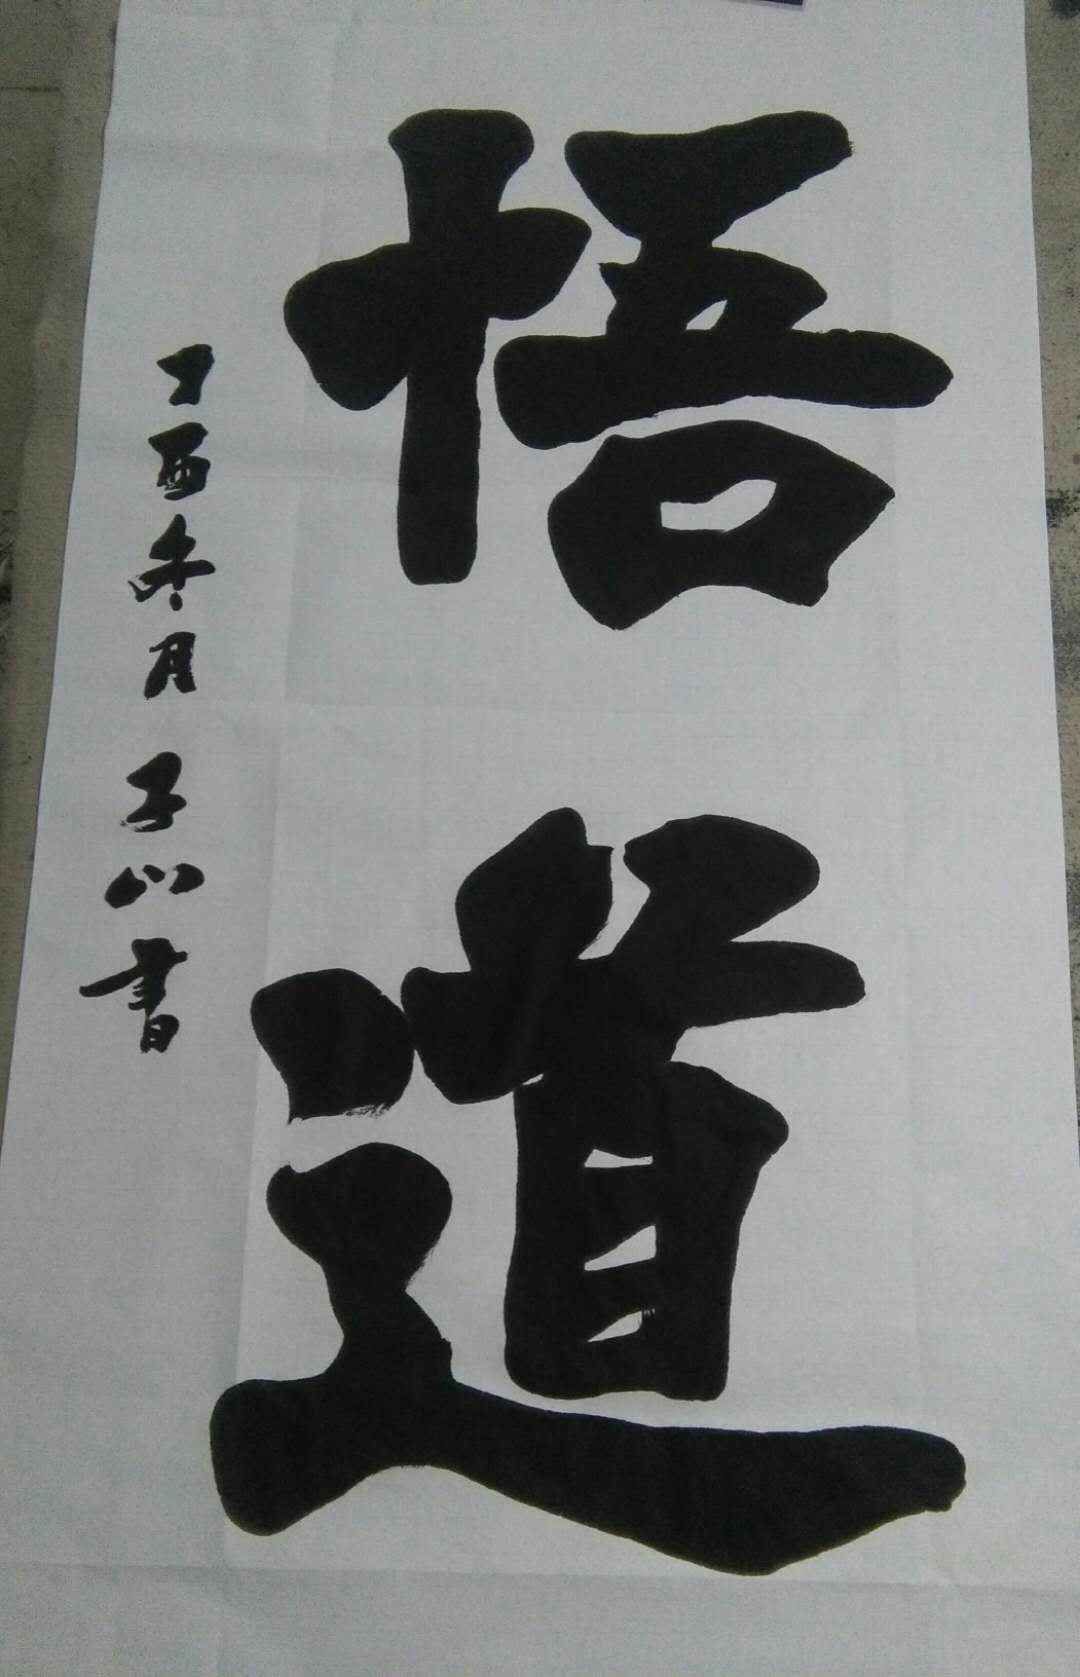 悟道
丁酉冬月子山書